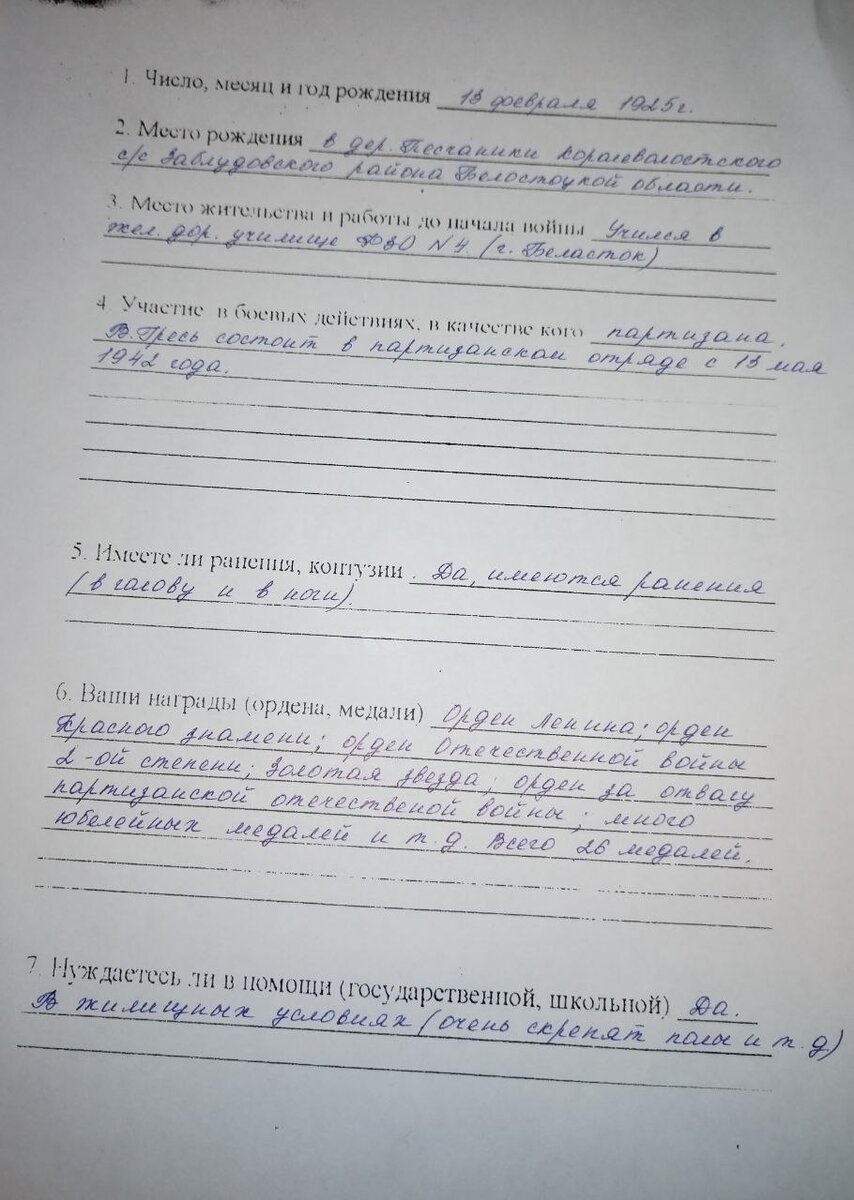 1. Число, месяц и год рождения 13 февраля 1925 г.
2. Место рождения в дер. Песчаники Королевагостского
с/с Заблудовского района Белостоцкой области.
3. Место жительства и работы до начала войны Учился в
жел. дор. училище №4. (г. Беласток)
4. Участие в боевых действиях, в качестве кого партизана.
В. Пресь состоит в партизанском отряде с 13 мая
1942 года.
5. Имеете ли ранения, контузии . Да, имеются ранения
(в галову и в ноги).
6. Ваши награды (ордена, медали) Орден Ленина; орден
Красного знамени; орден Отечественной войны
2-ой степени; Золотая звезда; орден за отвагу
партизанской отечественой войны; много
юбелейных медалей и т.д. Всего 26 медалей.
7. Нуждаетесь ли в помощи (государственной, школьной) Да.
В жилищных условиях (очень скрепят полы и т.д)